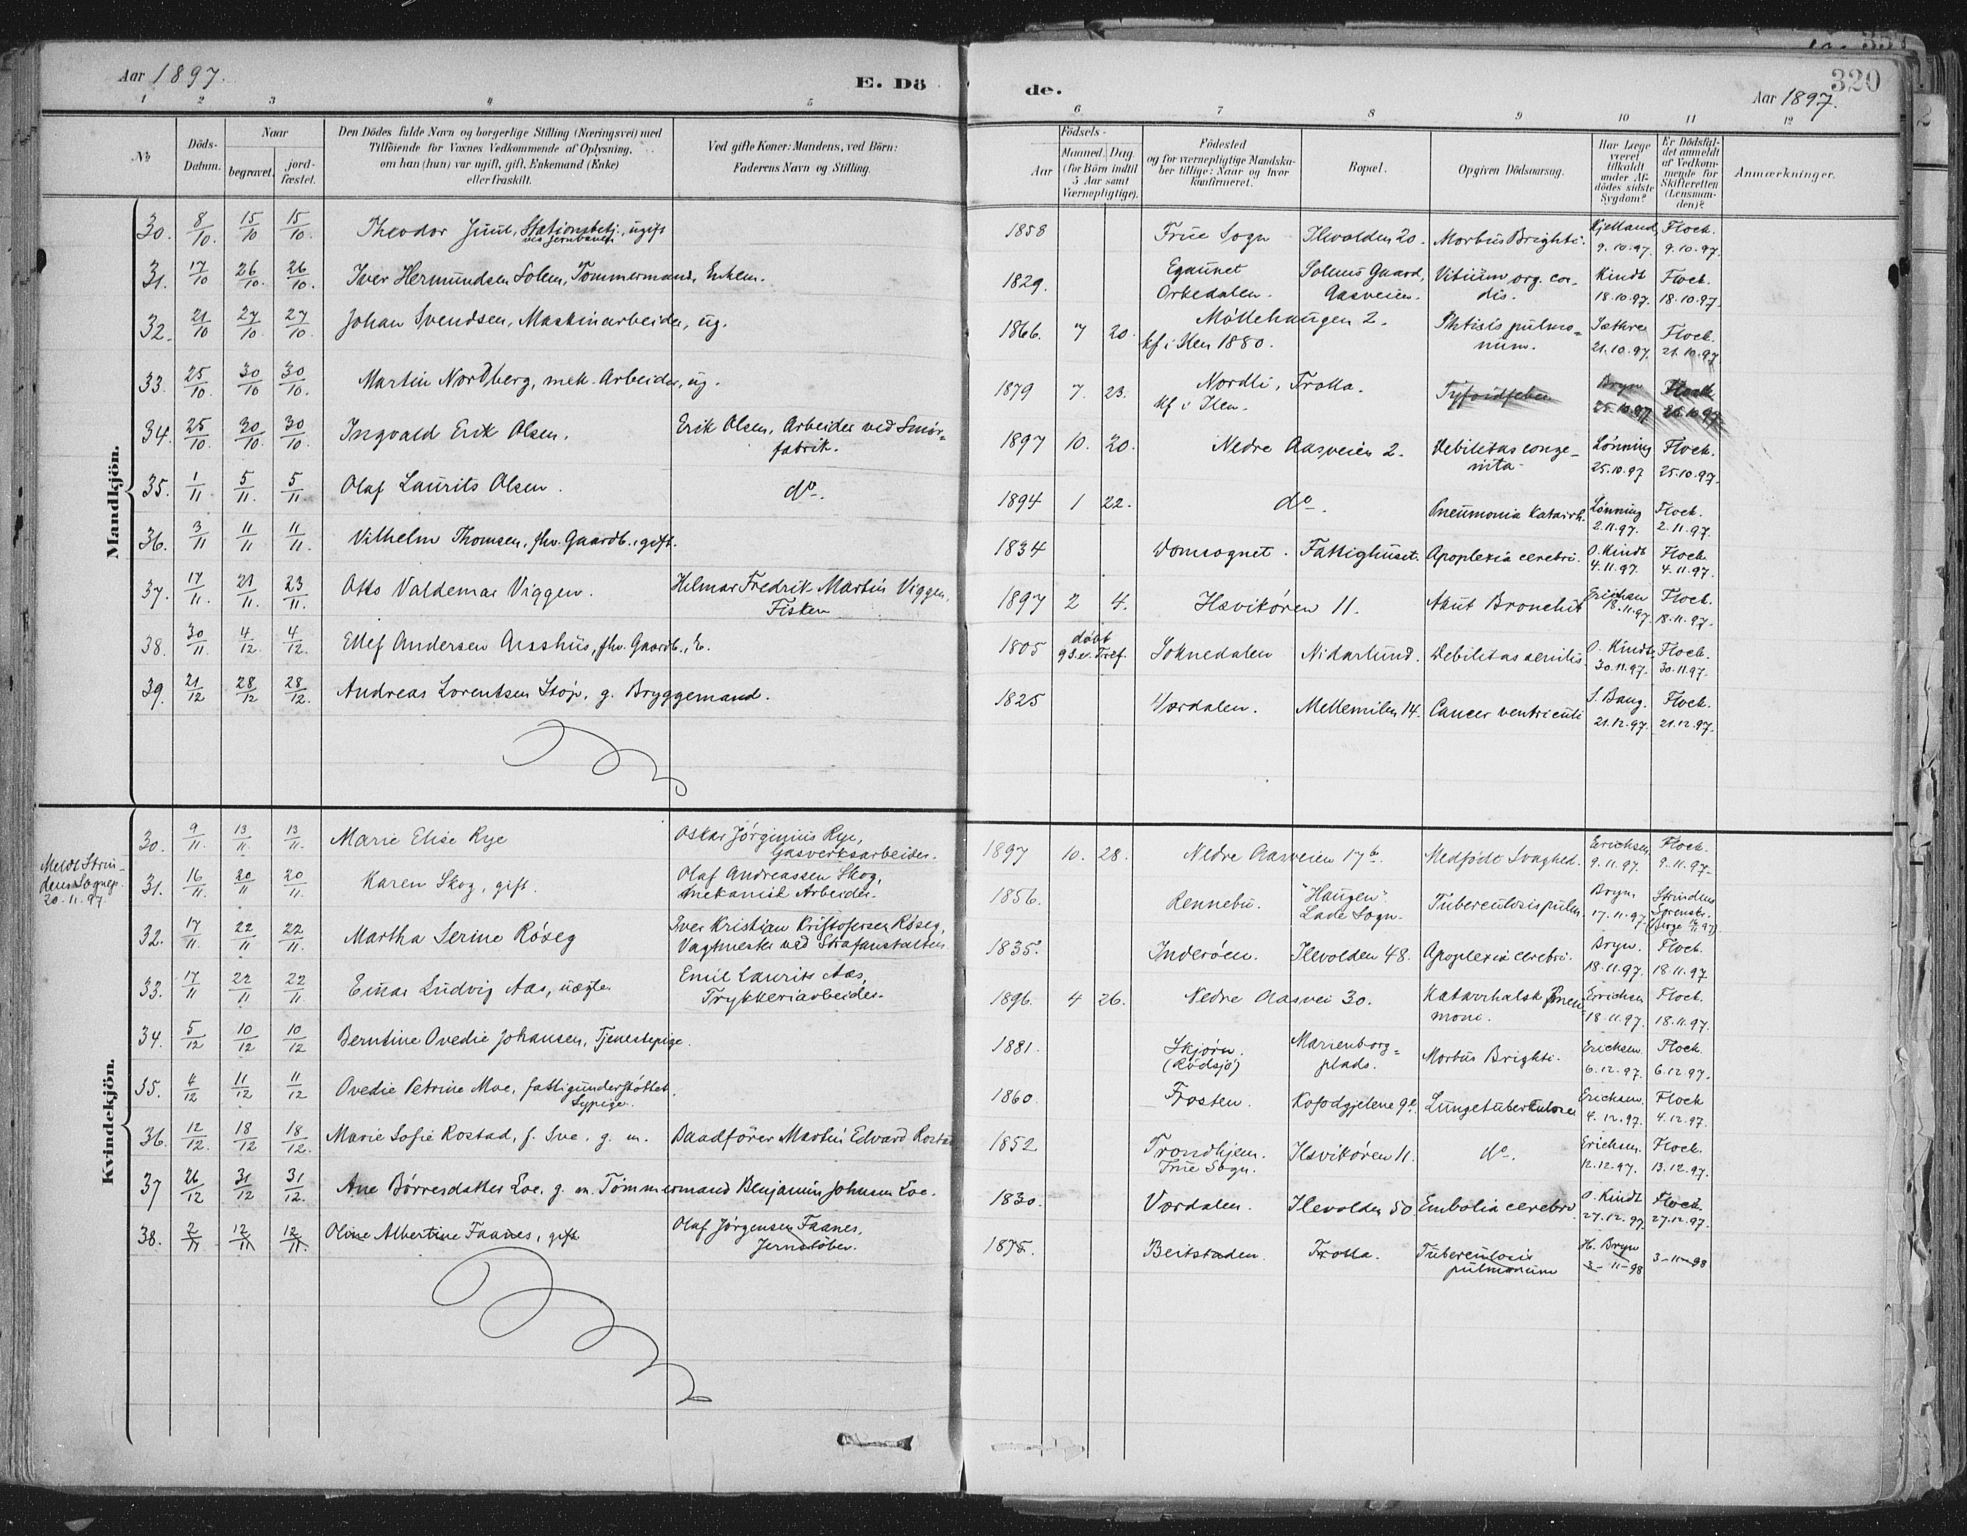 Aar 1897.
E. Dö
de.
320
Aar 1897.
1 2 3 4 5 6 7 8 9 10 11 12
No
Döds-Datum.
Naar
begravet.
jord-fæstet.
Den Dödes fulde Navn og borgerlige Stilling (Næringsvei) med
Tilföiende for Voxnes Vedkommende af Oplysning,
om han (hun) var ugift, gift, Enkemand (Enke)
eller fraskilt.
Ved gifte Koner: Mandens, ved Börn:
Faderens Navn og Stilling.
Födsels-
Aar
Maaned. Dag
(for Börn indtil
5 Aar samt
Værnepligtige).
Födested
og for værnepligtige Mandska-
ber tillige: Naar og hvor
konfirmeret.
Bopæl.
Opgiven Dödsaarsag.
Har Læge
været
tilkaldt
under Af-
dödes sidste
Sygdom?
Er Dödsfal-
det anmeldt
af Vedkom-
mende for
Skifteretten
(Lensman-
den)?
Anmærkninger.
Mandkjön.
30. 8/10. 15/10 15/10. Theodor Juul, Stationsbetj., ugift 1858 Frue Sogn Ilevolden 20. Morbus Brighti. Kjelland Flock.
ved Jernbanen 9.10.97. 9.10.97.
31. 17/10 26/10. 26/10. Iver Hermundsen Solem, Tømmermand, Enkem. 1829. Solems Gaard, Vitium org. cor- Kindt Flock.
Orkedalen. Aasveien. dis. 18.10.97. 18.10.97.
32. 21/10 27/10. 27/10. Johan Svendsen, Maskinarbeider, ug. 1866. 7 20. Möllehaugen 2. Phtisis pulmo- Sæthre Flock.
kf i Ilen 1880. num. 21.10.97. 21.10.97
33. 25/10. 30/10 30/10. Martin Nordberg, mek. Arbeider, ug. 1879 7. 23. Nordli, Trolla. Tyfoidfeber Bryn Flock
kf i Ilen. 25.10.97 26.10.97.
34. 25/10. 30/10. 30/10. Ingvald Erik Olsen. Erik Olsen, Arbeider ved Smör- 1897 10. 20. Nedre Aasveien 2. Debilitas conge- Lønning Flock.
fabrik. nita. 25.10.97 25.10.97.
35. 1/11. 5/11. 5/11. Olaf Laurits Olsen. do. 1894 1 22. do. Pneumonia Katarrh. Lønning Flock.
2.11.97. 2.11.97.
36. 3/11 11/11. 11/11. Vilhelm Thomsen, fhv. Gaardb., gift. 1834 Domsognet. Fattighuset. Apoplexia cerebri. O. Kindt Flock.
4.11.97. 4.11.97.
37. 17/11. 21/11. 23/11. Otto Valdemar Viggen. Hilmar Fredrik Martin Viggen, 1897 2 4. Ilsvikören 11. Akut Bronchit Erichsen Flock.
Fisker 18.11.97 18.11.97.
38. 30/11. 4/12 4/12. Ellef Andersen Aasshus, fhv. Gaardb., E. 1805 døbt Soknedalen Nidarlund. Debilitas senilis O. Kindt Flock.
9 S. e. Tref. 30.11.97. 30.11.97.
39. 21/12 28/12 28/12. Andreas Lorentsen Støp, g. Bryggemand. 1825 Værdalen. Mellemilen 14. Cancer ventriculi S. Bang. Flock.
21.12.97. 21.12.97.
Kvindekjön.
30. 9/11. 13/11. 13/11. Marie Elise Rye Oskar Jörginius Rye, 1897 10. 28. Nedre Aasveien 17b. Medfödt Svaghed. Erichsen Flock.
Gasverksarbeider. 9.11.97. 9.11.97.
Meldt Strin-
dens Sognepr.
20.11.97.
31. 16/11. 20/11 20/11. Karen Skog, gift. Olaf Andreassen Skog, 1856. Rennebu. "Haugen" Tuberculosis pulm. Bryn Strindens
mekanisk Arbeider. Lade Sogn. 17.11.97
32. 17/11. 22/11 22/11. Martha Serine Röseg Iver Kristian Kristofersen Röseg, 1835. Inderöen. Ilevolden 48. Apoplexia cerebri. Bryn. Flock.
Vagtmester ved Strafanstalten 18.11.97. 18.11.97.
33. 17/11 22/11. 22/11. Einar Ludvig Aas, uægte Emil Laurits Aas, 1896. 4 26. Nedre Aasvei 30. Katarrhalsk Pneu- Erichsen Flock.
Trykkeriarbeider. moni. 18.11.97. 18.11.97.
34. 5/12 10/12 10/12 Berntine Ovedie Johansen, Tjenestepige. 1881. Skjørn. Marienborg= Morbus Brighti. Erichsen. Flock.
(Rödsjö) plads. 6.12.97. 6.12.97.
35. 4/12 11/12 11/12 Ovedie Petrine Moe, fattigunderstöttet. 1860. Frosten. Kofodgjelene 9e. Lungetuberkulose Erichsen. Flock
Sypige. 4.12.97. 4.12.97.
36. 12/12. 18/12 18/12. Marie Sofie Rostad, f. Sve, g. m. Baadfører Martin Edvard Rostad 1852 Trondhjem. Ilsvikören 11. do. Erichsen. Flock.
Frue Sogn. 12.12.97. 13.12.97.
37 26/12 31/12 31/12. Ane Børresdatter Loe. g. m. Tömmermand Benjamin Johnsen Loe. 1830. Værdalen. Ilevolden 50 Embolia cerebri O. Kindt Flock.
27.12.97 27.12.97.
38. 2/11 12/11 12/11. Oline Albertine Faanes, gift Olaf Jörgensen Faanes, 1875. Beitstaden. Trolla. Tuberculosis H. Bryn 3-11-98
Jernstöber. pulmonum 3-11-98